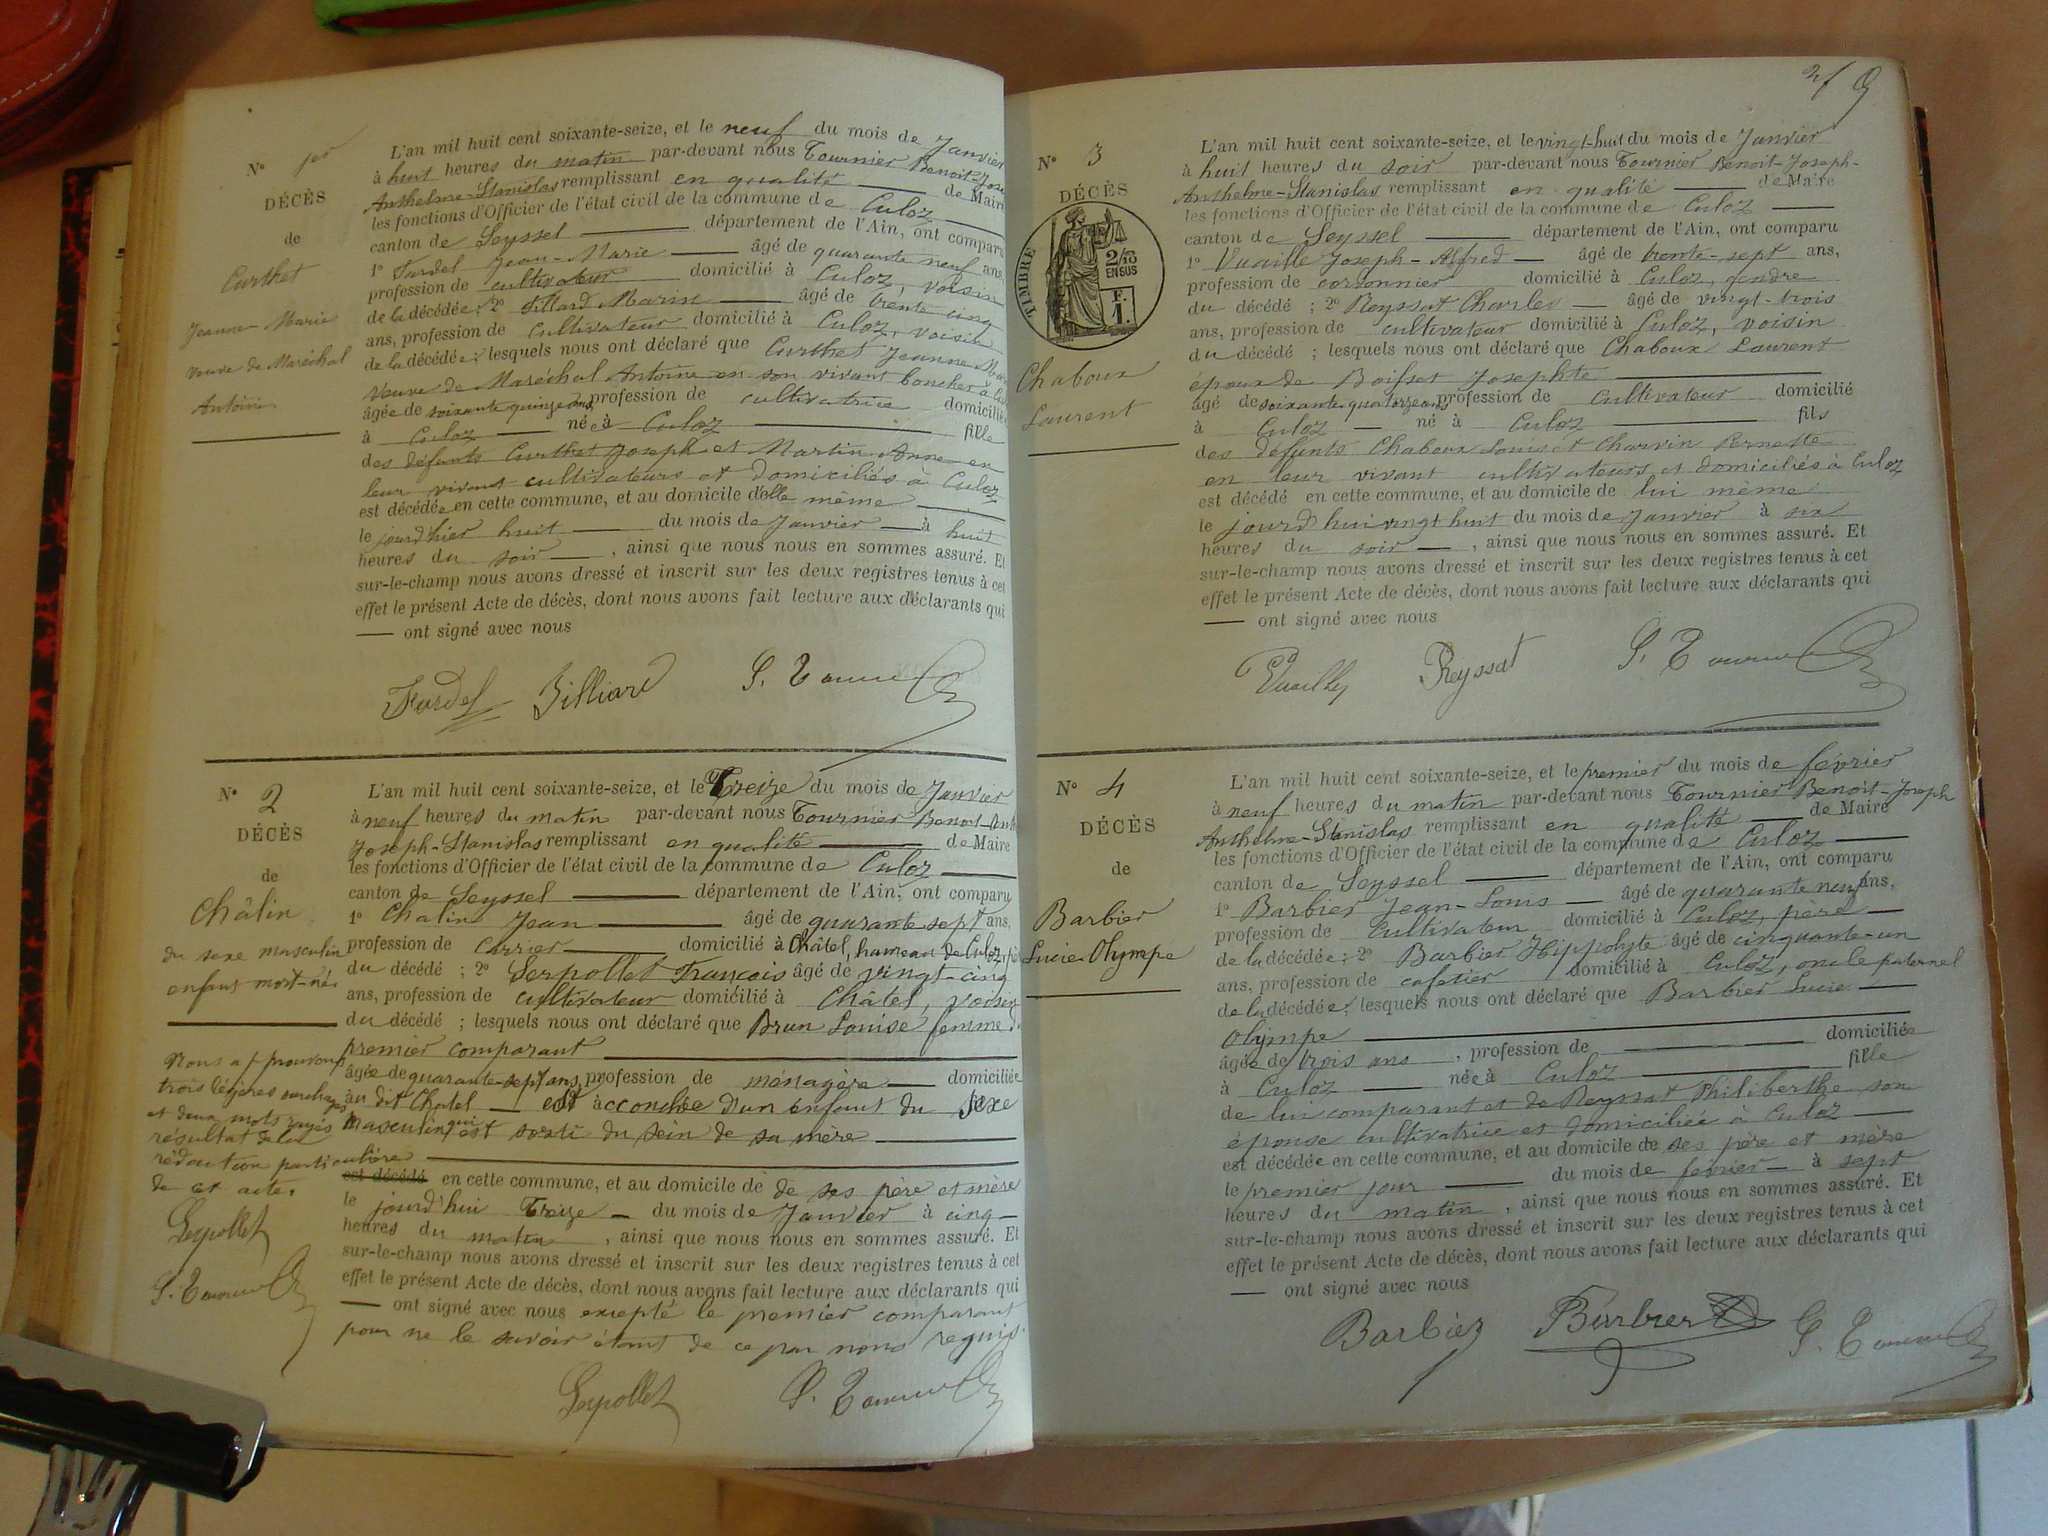 N° 1er
DÉCÈS
de
Curthet
Jeanne-Marie
veuve de Maréchal
Antoine
L'an mil huit cent soixante-seize, et le neuf du mois de Janvier
à huit heures du matin par-devant nous Tournier Benoit-Jos
Anthelme-Stanislas remplissant en qualité de Maire
les fonctions d'Officier de l'état civil de la commune de Culoz
canton de Seyssel département de l'Ain, ont comparu
1° Fardel Jean-Marie âgé de quarante neuf ans,
profession de cultivateur domicilié à Culoz, voisin
de la décédée; 2° Billard Marin âgé de trente cinq
ans, profession de cultivateur domicilié à Culoz, voisin
de la décédée; lesquels nous ont déclaré que Curthet Jeanne Marie
veuve de Maréchal Antoine en son vivant boucher à
âgée de soixante quinze ans, profession de cultivatrice domiciliée
à Culoz née à Culoz fille
des défunts Curthet Joseph et Martin Anne en
leur vivant cultivateurs et domiciliés à Culoz
est décédée en cette commune, et au domicile d'elle même
le jourd'hier huit du mois de Janvier à huit
heures du soir, ainsi que nous nous en sommes assuré. Et
sur-le-champ nous avons dressé et inscrit sur les deux registres tenus à cet
effet le présent Acte de décès, dont nous avons fait lecture aux déclarants qui
— ont signé avec nous
Fardel Billiard
N° 2
DÉCÈS
de
Châlin
du sexe masculin
enfant mort-né
Nous approuvons
trois légères surcharges
et deux mots rayés
résultat de la
rédaction particulière
de cet acte.
Serpollet
L'an mil huit cent soixante-seize, et le Treize du mois de Janvier
à neuf heures du matin par-devant nous Tournier Benoit-Anth
Joseph-Stanislas remplissant en qualité de Maire
les fonctions d'Officier de l'état civil de la commune de Culoz
canton de Seyssel département de l'Ain, ont comparu
1° Chalin Jean âgé de quarante sept ans,
profession de Carrier domicilié à Châtel, hameau de Culoz, père
du décédé; 2° Serpollet François âgé de vingt-cinq
ans, profession de cultivateur domicilié à Châtel, voisin
du décédé; lesquels nous ont déclaré que Brun Louise femme du
premier comparant
âgée de quarante-sept ans, profession de ménagère domiciliée
au dit Chatel est accouchée d'un enfant du sexe
masculin qui est sorti du sein de sa mère
est décédé en cette commune, et au domicile de de ses père et mère
le jourd'hui Treize du mois de Janvier à cinq
heures du matin, ainsi que nous nous en sommes assuré. Et
sur-le-champ nous avons dressé et inscrit sur les deux registres tenus à cet
effet le présent Acte de décès, dont nous avons fait lecture aux déclarants qui
— ont signé avec nous excepté le premier comparant
pour ne le savoir étant de ce par nous requis.
Serpollet
N° 3
DÉCÈS
TIMBRE
2/10
EN SUS
F.
1.
Chaboux
Laurent
L'an mil huit cent soixante-seize, et le vingt-huit du mois de Janvier
à huit heures du soir par-devant nous Tournier Benoit-Joseph-
Anthelme-Stanislas remplissant en qualité de Maire
les fonctions d'Officier de l'état civil de la commune de Culoz
canton de Seyssel département de l'Ain, ont comparu
1° Vuaille Joseph-Alfred âgé de trente-sept ans,
profession de cordonnier domicilié à Culoz, gendre
du décédé; 2° Reyssat Charles âgé de vingt-trois
ans, profession de cultivateur domicilié à Culoz, voisin
du décédé; lesquels nous ont déclaré que Chaboux Laurent
époux de Boisset Josephte
âgé de soixante quatorze ans profession de cultivateur domicilié
à Culoz né à Culoz fils
des défunts Chaboux Louis et Charvin Pernette
en leur vivant cultivateurs et domiciliés à Culoz
est décédé en cette commune, et au domicile de lui même
le jourd'hui vingt huit du mois de Janvier à six
heures du soir, ainsi que nous nous en sommes assuré. Et
sur-le-champ nous avons dressé et inscrit sur les deux registres tenus à cet
effet le présent Acte de décès, dont nous avons fait lecture aux déclarants qui
— ont signé avec nous
Reyssat
N° 4
DÉCÈS
de
Barbier
Lucie Olympe
L'an mil huit cent soixante-seize, et le premier du mois de février
à neuf heures du matin par-devant nous Tournier Benoit-Joseph
Anthelme-Stanislas remplissant en qualité de Maire
les fonctions d'Officier de l'état civil de la commune de Culoz
canton de Seyssel département de l'Ain, ont comparu
1° Barbier Jean-Louis âgé de quarante neuf ans,
profession de Cultivateur domicilié à Culoz, père
de la décédée; 2° Barbier Hippolyte âgé de cinquante-un
ans, profession de cafetier domicilié à Culoz, oncle paternel
de la décédée; lesquels nous ont déclaré que Barbier Lucie
Olympe
âgée de trois ans, profession de domiciliée
à Culoz née à Culoz fille
de lui comparant et de Reyssat Philiberthe son
épouse cultivatrice et domiciliée à Culoz
est décédée en cette commune, et au domicile de ses père et mère
le premier jour du mois de février à sept
heures du matin, ainsi que nous nous en sommes assuré. Et
sur-le-champ nous avons dressé et inscrit sur les deux registres tenus à cet
effet le présent Acte de décès, dont nous avons fait lecture aux déclarants qui
— ont signé avec nous
Barbier Barbier